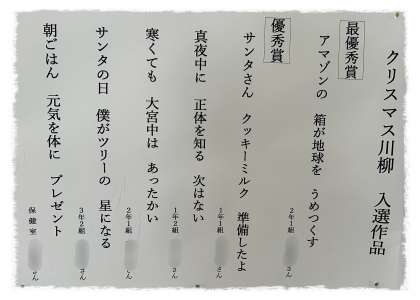 クリスマス川柳 入選作品
最優秀賞
アマゾンの 箱が地球を うめつくす
2年1組 さん
優秀賞
サンタさん クッキーミルク 準備したよ
1年1組 さん
真夜中に 正体を知る 次はない
1年2組 さん
寒くても 大宮中は あったかい
2年1組 さん
サンタの日 僕がツリーの 星になる
3年2組 さん
朝ごはん 元気を体に プレゼント
保健室 さん